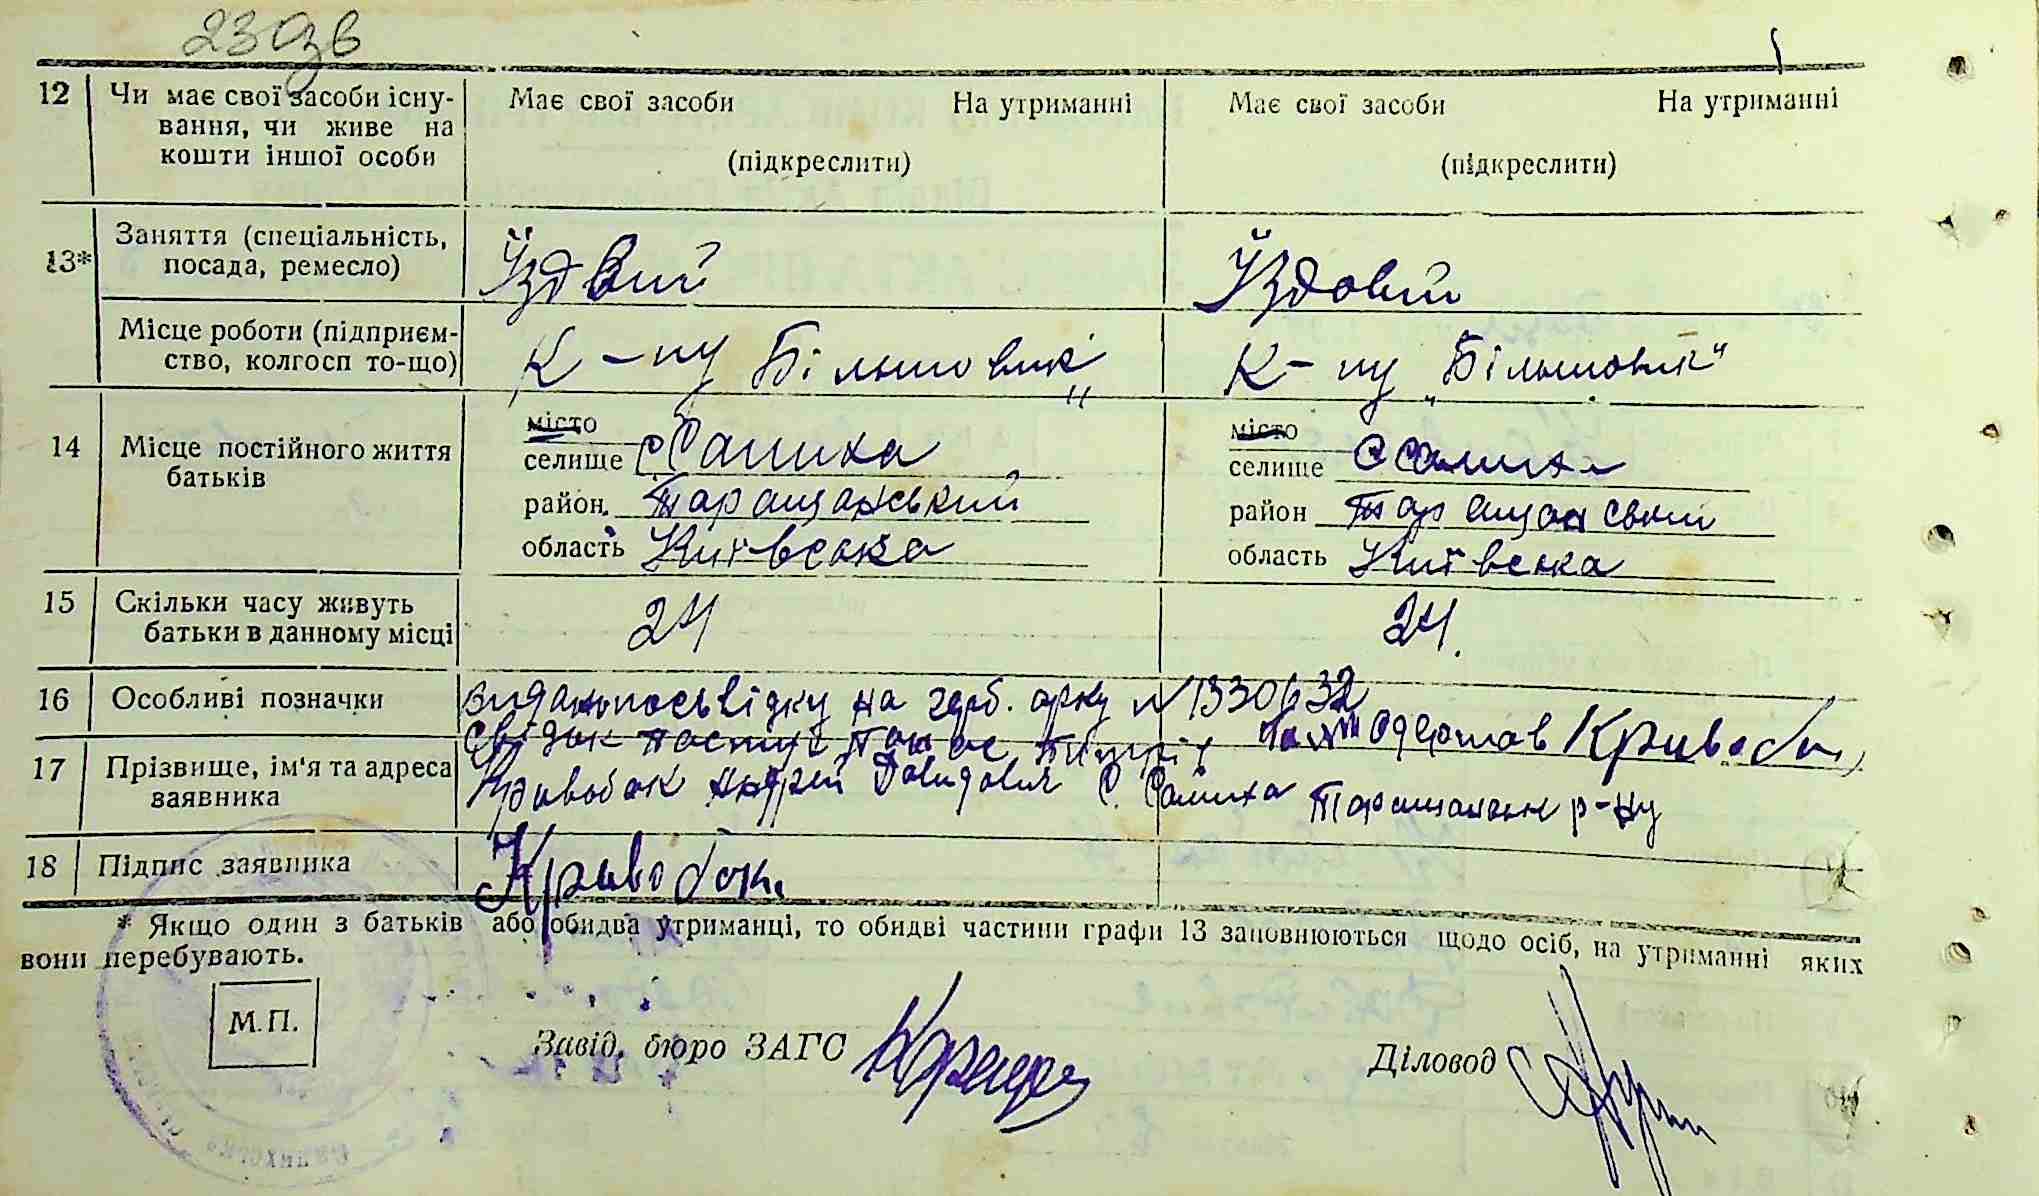 23
12 Чи має свої засоби існу- Має свої засоби На утриманні Має свої засоби На утриманні
вання, чи живе на
кошти іншої особи (підкреслити) (підкреслити)
13* Заняття (спеціальність,
посада, ремесло) Їздвий Їздовий
Місце роботи (підприєм-
ство, колгосп то-що) К-пу Більшовик" К-пу „Більшовик"
14 Місце постійного життя
батьків
місто місто
селище с Салиха селище с Салиха
район Таращанський район Таращанський
область Київська область Київська
15 Скільки часу живуть
батьки в данному місці 24 24.
16 Особливі позначки на герб. арку № 1330632
Свідок одержав Кривобок
17 Прізвище, ім'я та адреса
заявника Кривобок Андрій Давидович С. Салиха р-ну
18 Підпис заявника Кривобок
* Якщо один з батьків або обидва утриманці, то обидві частини графи 13 заповнюються щодо осіб, на утриманні яких
вони перебувають.
М.П.
Завід. бюро ЗАГС
Діловод